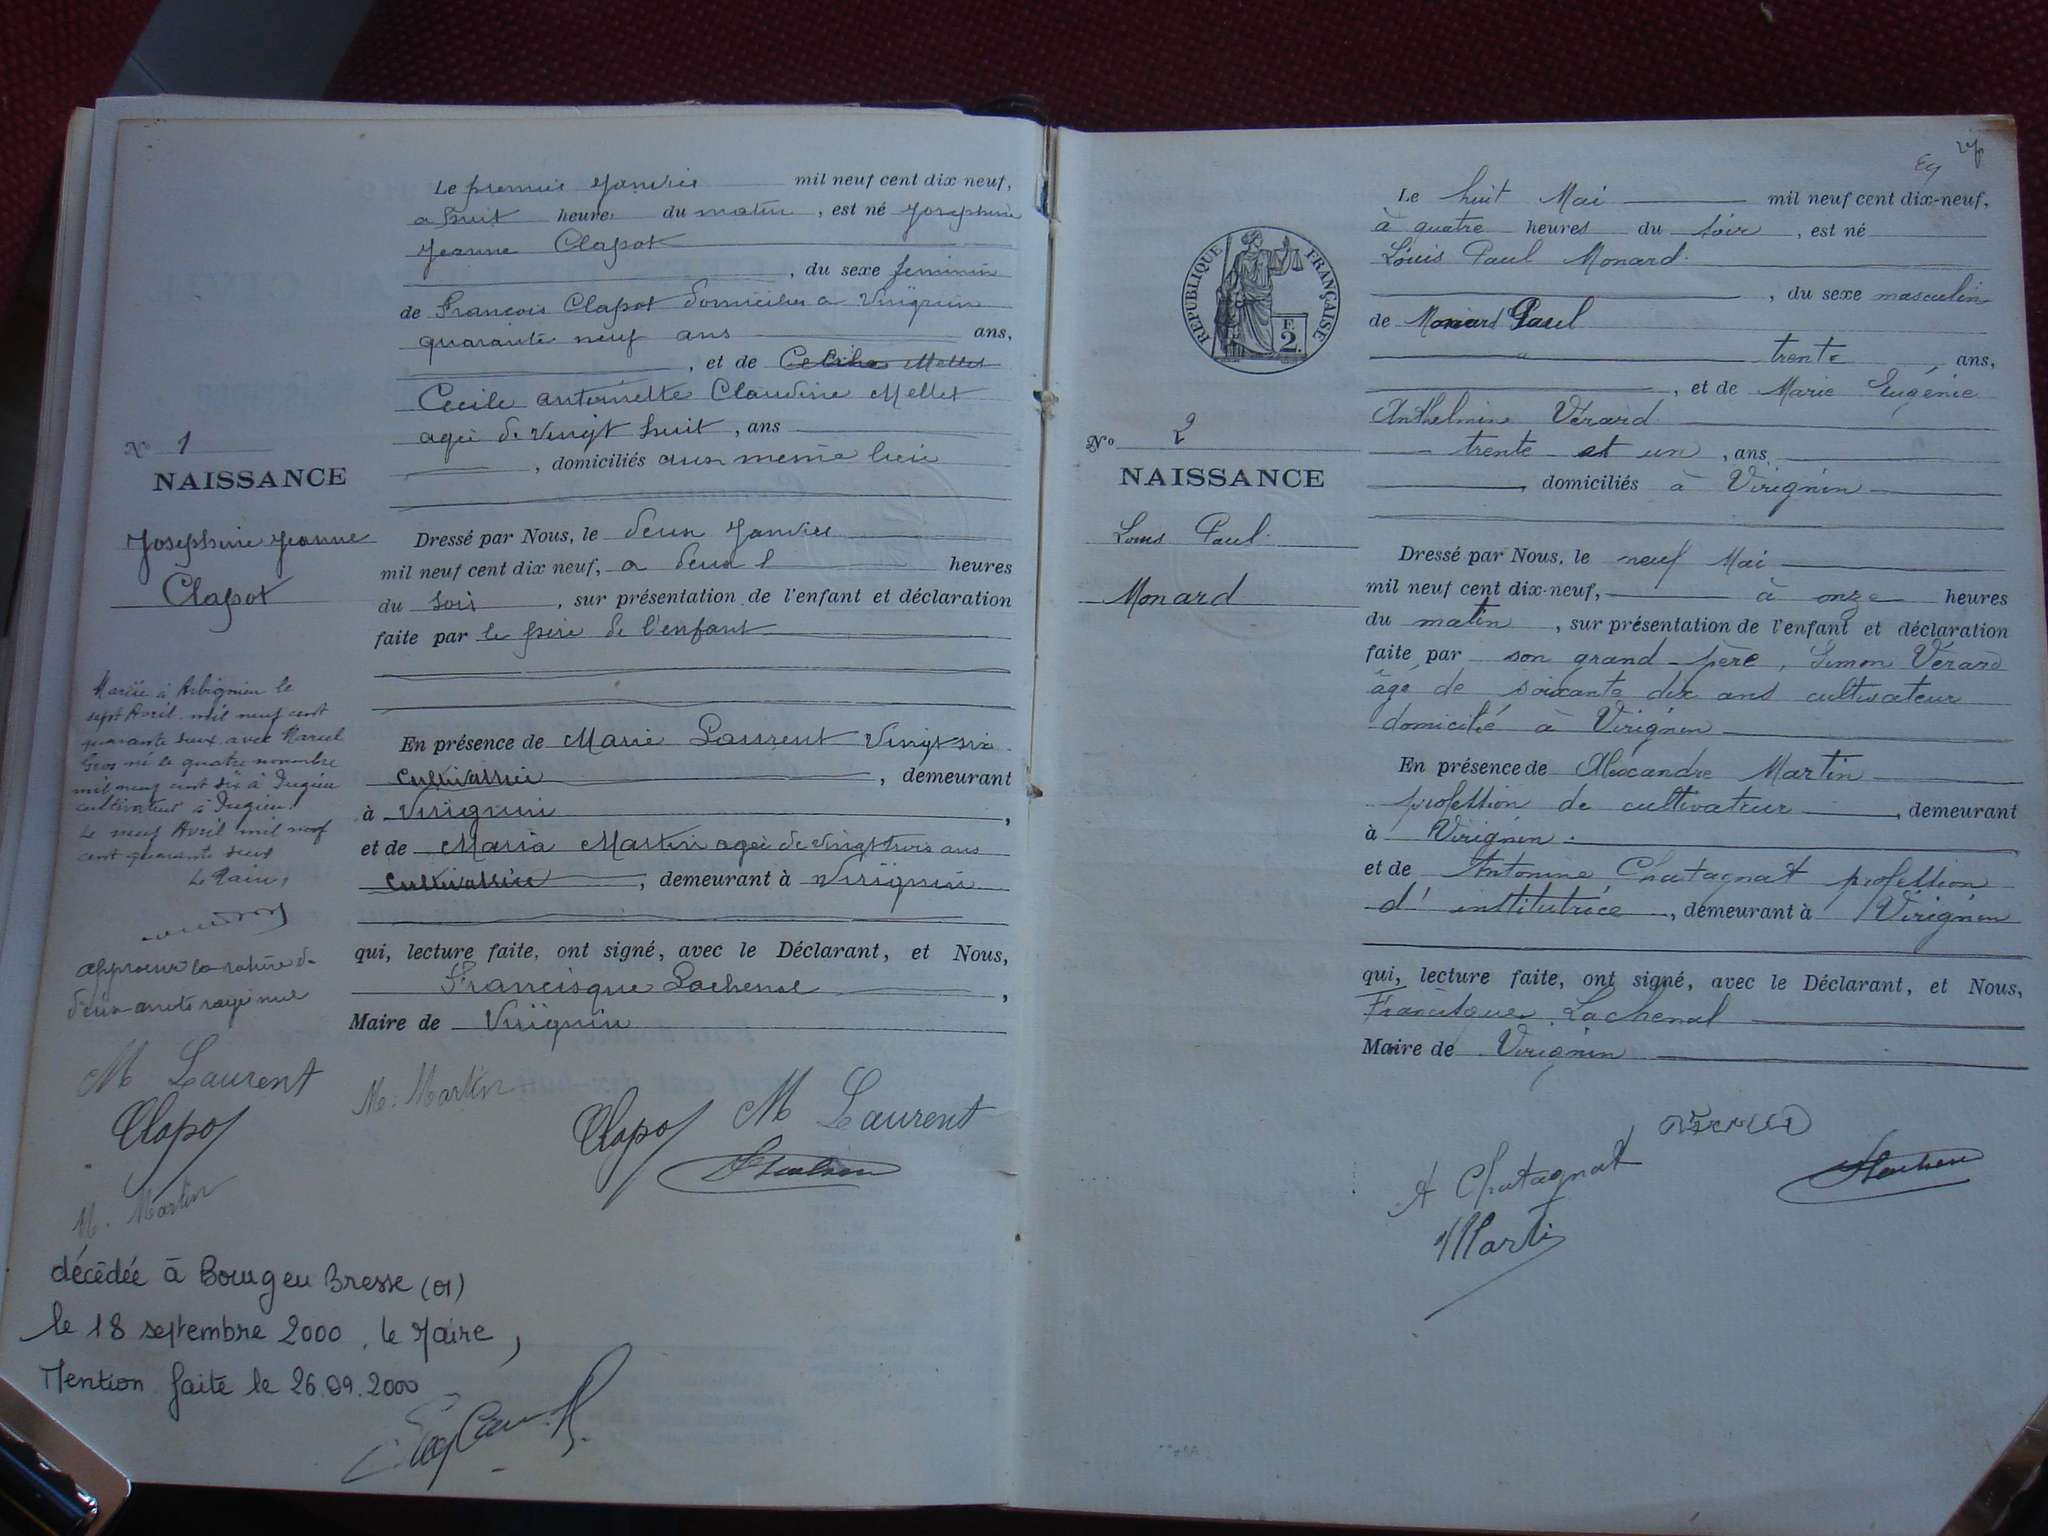 Le premier Janvier mil neuf cent dix neuf,
a huit heures du matin, est né Josephine
Jeanne Clapot
, du sexe feminin
de François Clapot domicilier a Virignin
quarante neuf ans ans,
, et de Cecile Mellet
Cecile antoinette Claudine Mellet
agée de Vingt huit, ans
, domiciliés aux meme lieu
No 1
NAISSANCE
Josephine Jeanne
Clapot
Dressé par Nous, le deux Janvier
mil neuf cent dix neuf, a deux heures
du soir, sur présentation de l'enfant et déclaration
faite par le père de l'enfant
En présence de Marie Laurent Vingt six
cultivatrice, demeurant
à Virignin,
et de Maria Martin agée de vingt trois ans
cultivatrice, demeurant à Virignin
qui, lecture faite, ont signé, avec le Déclarant, et Nous,
Francisque Lachenal,
Maire de Virignin
Mariée à Arbignieu le
sept Avril mil neuf cent
quarante deux avec Marcel
Gros né le quatre novembre
mil neuf cent six à
cultivateur à
Le neuf Avril mil neuf
cent quarante deux
Le Maire,
approuvé la rature de
deux mots rayé nul
M Laurent
Clapot
M. Martin
M. Martin
Clapot M Laurent
décédée à Bourg en Bresse (01)
le 18 septembre 2000. le Maire,
Mention faite le 26.09.2000
27
Le huit Mai mil neuf cent dix-neuf,
à quatre heures du soir, est né
Louis Paul Monard
, du sexe masculin
de Monard Paul
trente ans,
, et de Marie Eugénie
Anthelmine Vérard
trente et un, ans
, domiciliés à Virignin
RÉPUBLIQUE FRANÇAISE
F.
2.
No 2
NAISSANCE
Louis Paul
Monard
Dressé par Nous, le neuf Mai
mil neuf cent dix-neuf, à onze heures
du matin, sur présentation de l'enfant et déclaration
faite par son grand-père, Simon Vérard
âgé de soixante dix ans cultivateur
domicilié à Virignin
En présence de Alexandre Martin
profession de cultivateur, demeurant
à Virignin.
et de Antonine Chatagnat profession
d'institutrice, demeurant à Virignin
qui, lecture faite, ont signé, avec le Déclarant, et Nous,
Francisque Lachenal
Maire de Virignin
A Chatagnat
Martin